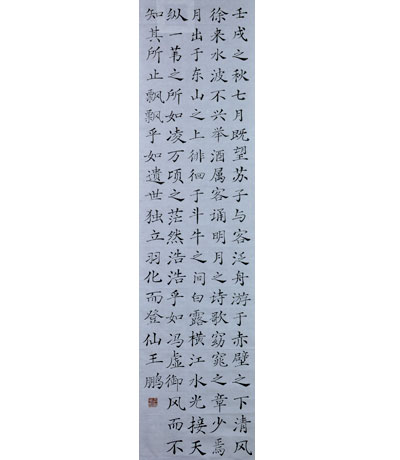 壬戌之秋七月既望苏子与客泛舟游于赤壁之下清风
徐来水波不兴举酒属客诵明月之诗歌窈窕之章少焉
月出于东山之上徘徊于斗牛之间白露横江水光接天
纵一苇之所如凌万顷之茫然浩浩乎如冯虚御风而不
知其所止飘飘乎如遗世独立羽化而登仙王鹏